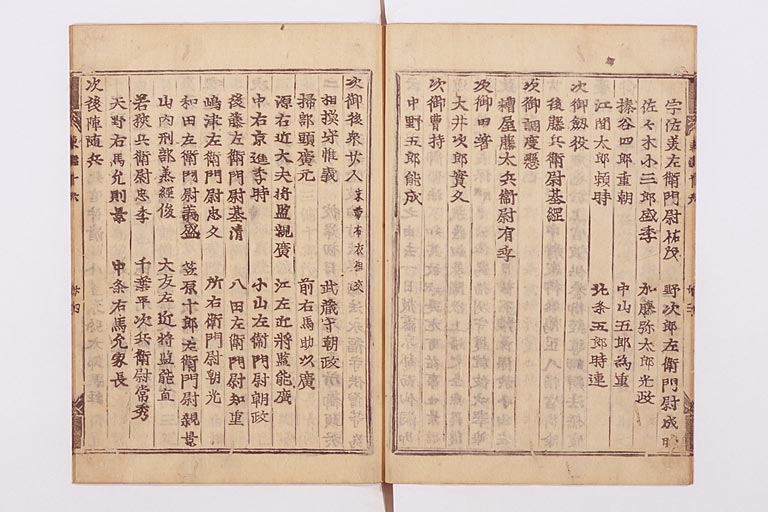 宇佐美左衛門尉祐茂 野次郎左衛門尉成時
佐々木小三郎盛季 加藤弥太郎光政
榛谷四郎重朝 中山五郎為重
江間太郎頼時 北条五郎時連
次御劔役
後藤兵衛尉基經
次御調度懸
糟屋藤太兵衛尉有季
次御甲著
大井次郎實久
次御冑持
中野五郎能成
次御後衆廿人 束帯布衣相交
相摸守惟義 武藏守朝政
掃部頭廣元 前右馬助以廣
源右近大夫将監親廣 江左近将監能廣
中右京進季時 小山左衛門尉朝政
後藤左衛門尉基清 八田左衛門尉知重
嶋津左衛門尉忠久 所右衛門尉朝光
和田左衛門尉義盛 笠原十郎左衛門尉親景
山内刑部義經俊 大友左近将監能直
若狭兵衛尉忠季 千葉平次兵衛尉常秀
天野右馬允則景 中条右馬允家長
次後陣随兵